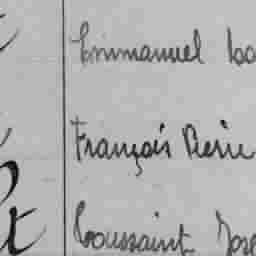 Emmanuel
François Pierre
Toussaint Jose